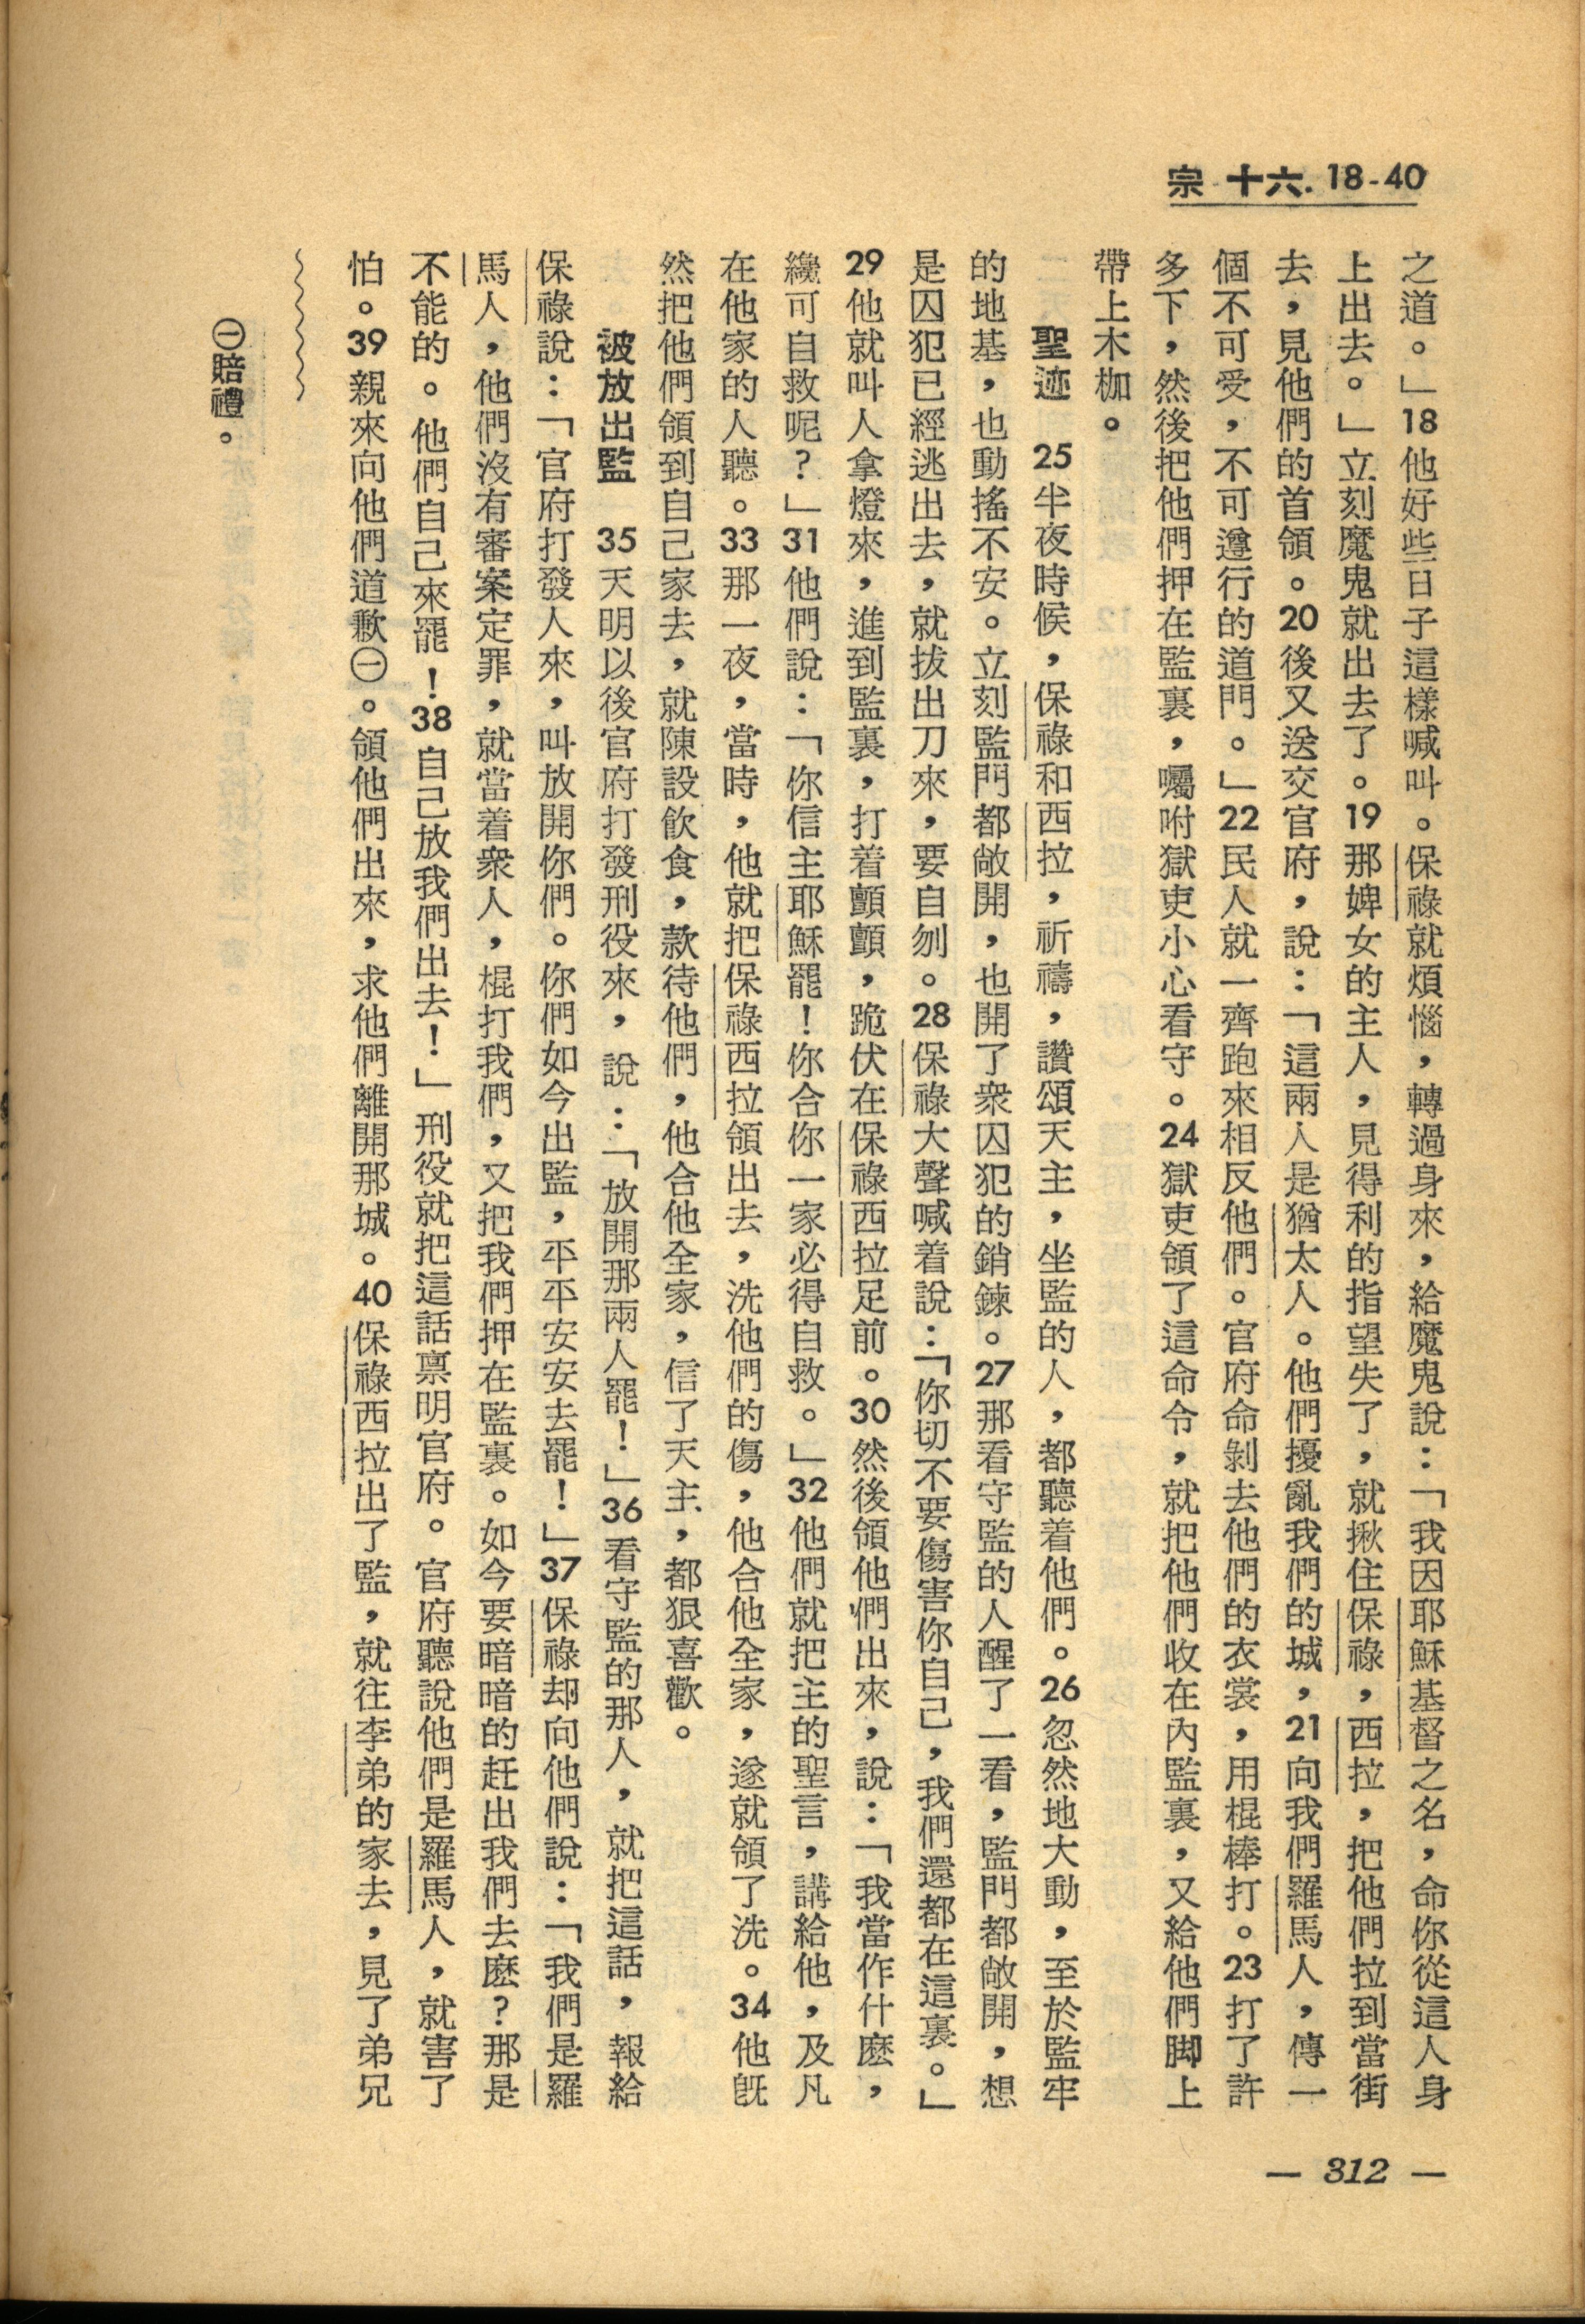 宗 十六. 18-40
之道。」18他好些日子這樣喊叫。保祿就煩惱，轉過身來，給魔鬼說：「我因耶穌基督之名，命你從這人身
上出去。」立刻魔鬼就出去了。19那婢女的主人，見得利的指望失了，就揪住保祿，西拉，把他們拉到當街
去，見他們的首領。20後又送交官府，說：「這兩人是猶太人。他們擾亂我們的城，21向我們羅馬人，傳一
個不可受，不可遵行的道門。」22民人就一齊跑來相反他們。官府命剝去他們的衣裳，用棍棒打。23打了許
多下，然後把他們押在監裏，囑咐獄吏小心看守。24獄吏領了這命令，就把他們收在內監裏，又給他們脚上
帶上木枷。
聖迹 25半夜時候，保祿和西拉，祈禱，讚頌天主，坐監的人，都聽着他們。26忽然地大動，至於監牢
的地基，也動搖不安。立刻監門都敞開，也開了衆囚犯的銷鍊。27那看守監的人醒了一看，監門都敞開，想
是囚犯已經逃出去，就拔出刀來，要自刎。28保祿大聲喊着說：「你切不要傷害你自己，我們還都在這裏。」
29他就叫人拿燈來，進到監裏，打着顫顫，跪伏在保祿西拉足前。30然後領他們出來，說：「我當作什麽，
纔可自救呢？」31他們說：「你信主耶穌罷！你合你一家必得自救。」32他們就把主的聖言，講給他，及凡
在他家的人聽。33那一夜，當時，他就把保祿西拉領出去，洗他們的傷，他合他全家，遂就領了洗。34他旣
然把他們領到自己家去，就陳設飮食，款待他們，他合他全家，信了天主，都狠喜歡。
被放出監 35天明以後官府打發刑役來，說：「放開那兩人罷！」36看守監的那人，就把這話，報給
保祿說：「官府打發人來，叫放開你們。你們如今出監，平平安安去罷！」37保祿却向他們說：「我們是羅
馬人，他們沒有審案定罪，就當着衆人，棍打我們，又把我們押在監裏。如今要暗暗的赶出我們去麽？那是
不能的。他們自己來罷！38自己放我們出去！」刑役就把這話禀明官府。官府聽說他們是羅馬人，就害了
怕。39親來向他們道歉㊀。領他們出來，求他們離開那城。40保祿西拉出了監，就往李弟的家去，見了弟兄
㊀賠禮。
— 312 —